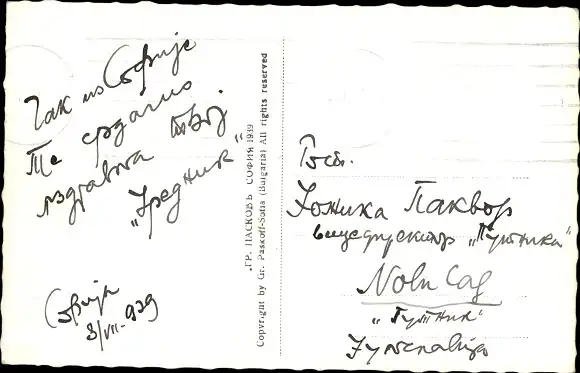 Чак из Софије
Те срдачно
поздравља твој
„Уредник"
Софија
3/VII-939
„ГР. ПАСКОВЪ" СОФИЯ 1939
Copyright by Gr. Paskoff-Sofia (Bulgaria) All rights reserved
Госп.
Јожика Паквор
вицедиректор „Путника"
Novi Sad
„Путник"
Југославија